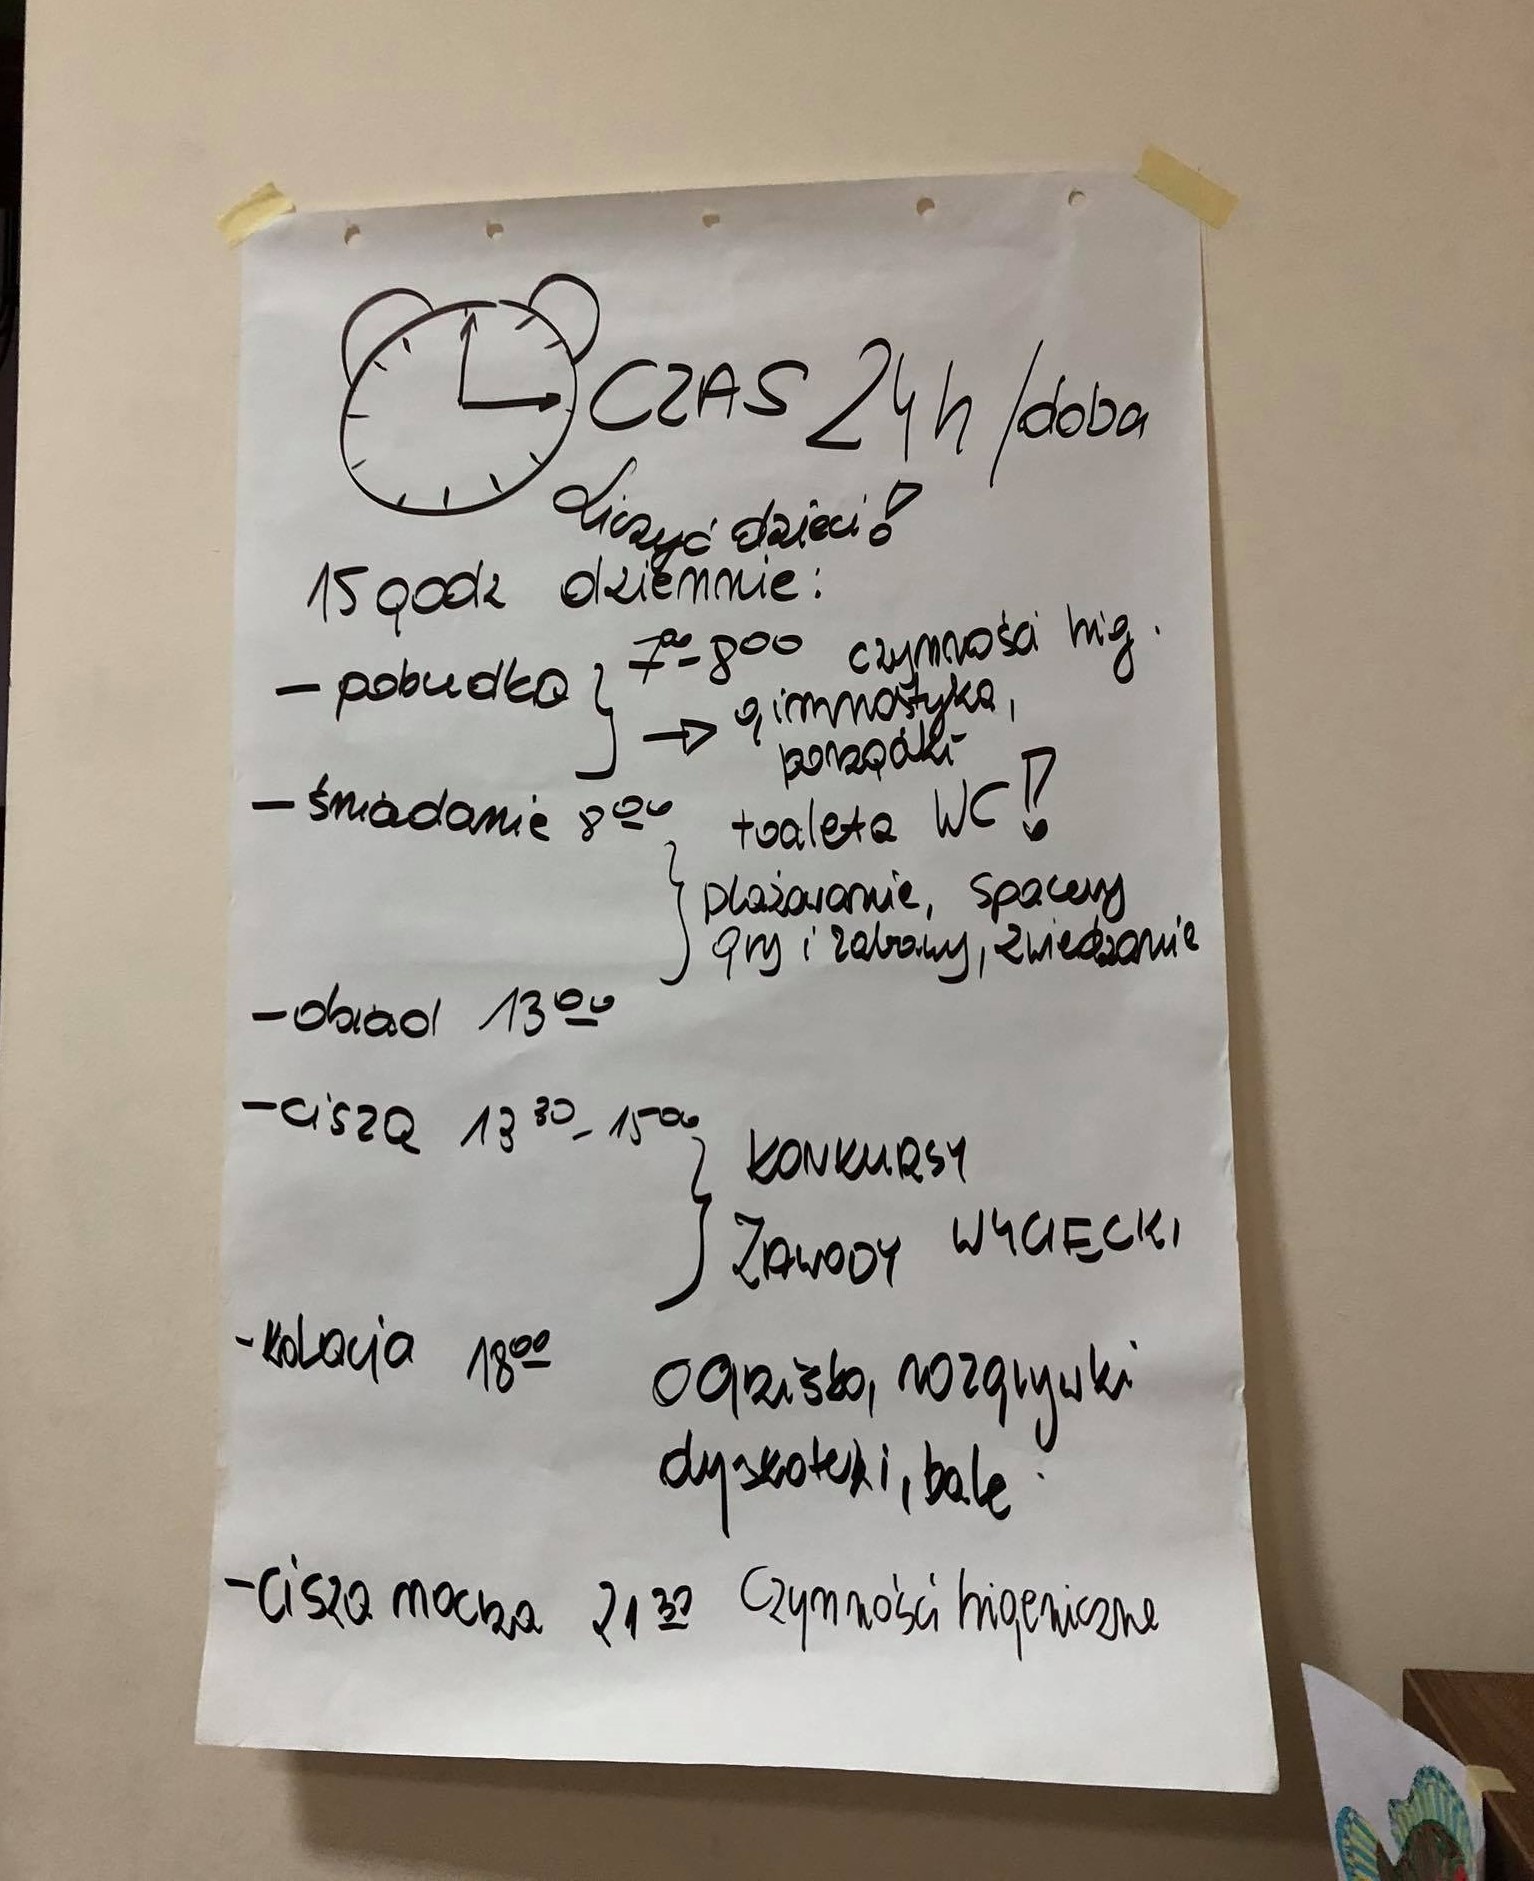 CZAS 24h/doba
Liczyć dzieci!
15 godz dziennie:
- pobudka } 7⁰⁰-8⁰⁰ czynności hig.
→ gimnastyka,
porządki
- śniadanie 8⁰⁰ toaleta WC!
} plażowanie, spacery
gry i zabawy, zwiedzanie
- obiad 13⁰⁰
- cisza 13³⁰ - 15⁰⁰
} KONKURSY
ZAWODY WYCIECKI
- kolacja 18⁰⁰ ogniska, rozgrywki
dyskoteki, bale.
- cisza nocna 21³⁰ Czynności higeniczne